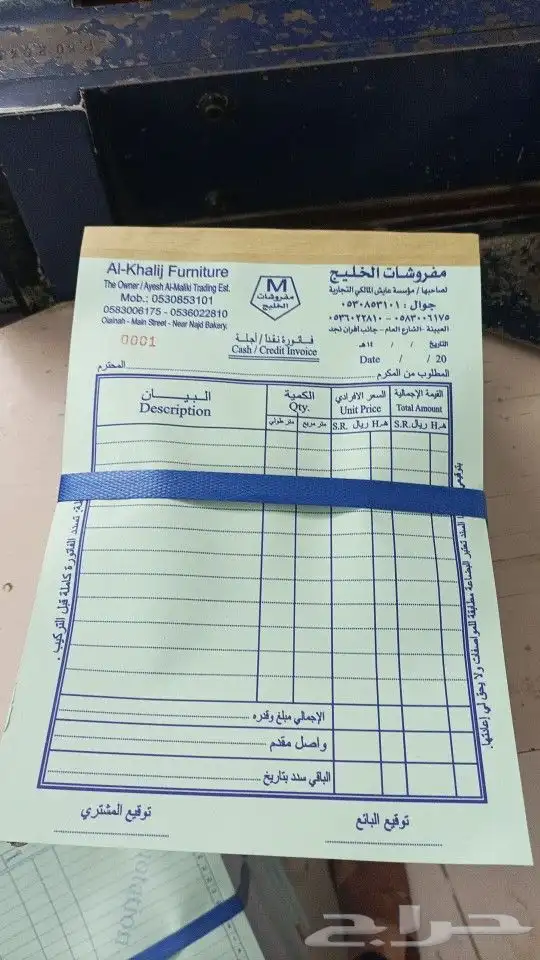 Al-Khalij Furniture
The Owner / Ayesh Al-Maliki Trading Est.
Mob.: 0530853101
0583006175 - 0536022810
Olainah - Main Street - Near Najd Bakery.
0001
M
مفروشات
الخليج
فاتورة نقداً / آجلة
Cash / Credit Invoice
مفروشات الخليج
لصاحبها / مؤسسة عايش المالكي التجارية
جوال : ٠٥٣٠٨٥٣١٠١
٠٥٨٣٠٠٦١٧٥ - ٠٥٣٦٠٢٢٨١٠
العيينة - الشارع العام - جانب أفران نجد
التاريخ / / ١٤هـ
Date / / 20
المطلوب من المكرم المحترم
القيمة الإجمالية السعر الافرادي الكمية البيـــان
Total Amount Unit Price Qty. Description
هـ H. ريال S.R. هـ H. ريال S.R. متر مربع متر طولي
الإجمالي مبلغ وقدره
واصل مقدم
الباقي سدد بتاريخ
توقيع البائع توقيع المشتري
تسدد الفاتورة كاملة قبل التركيب .
السند تعتبر البضاعة مطابقة للمواصفات ولا يحق لي إعادتها.
حراج